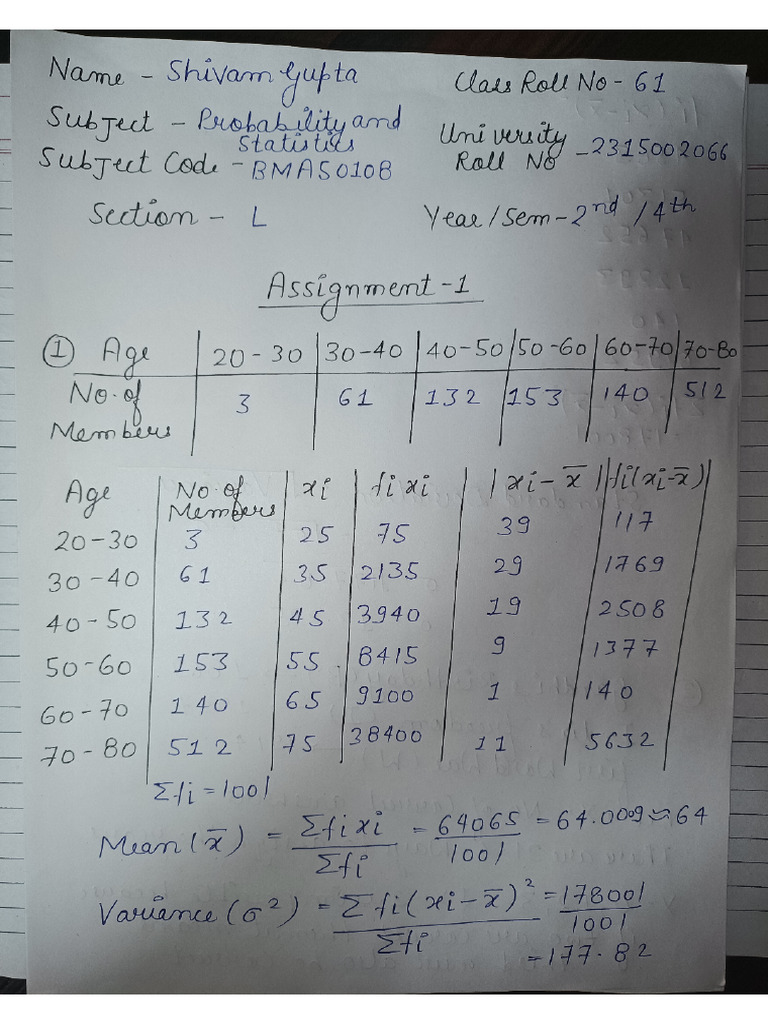 Name - Shivam Gupta Class Roll No - 61
Subject - Probability and Statistics University Roll No - 2315002066
Subject Code - BMAS0108
Section - L Year/Sem - 2nd / 4th
Assignment - 1
① Age | 20-30 | 30-40 | 40-50 | 50-60 | 60-70 | 70-80
No. of Members | 3 | 61 | 132 | 153 | 140 | 512
Age | No of Members | xi | fi xi | |xi - x̄| | fi(xi-x̄)
20-30 | 3 | 25 | 75 | 39 | 117
30-40 | 61 | 35 | 2135 | 29 | 1769
40-50 | 132 | 45 | 3940 | 19 | 2508
50-60 | 153 | 55 | 8415 | 9 | 1377
60-70 | 140 | 65 | 9100 | 1 | 140
70-80 | 512 | 75 | 38400 | 11 | 5632
Σfi = 1001
Mean (x̄) = Σfixi / Σfi = 64065 / 1001 = 64.009 ≈ 64
Variance (σ²) = Σfi(xi - x̄)² / Σfi = 178001 / 1001
= 177.82